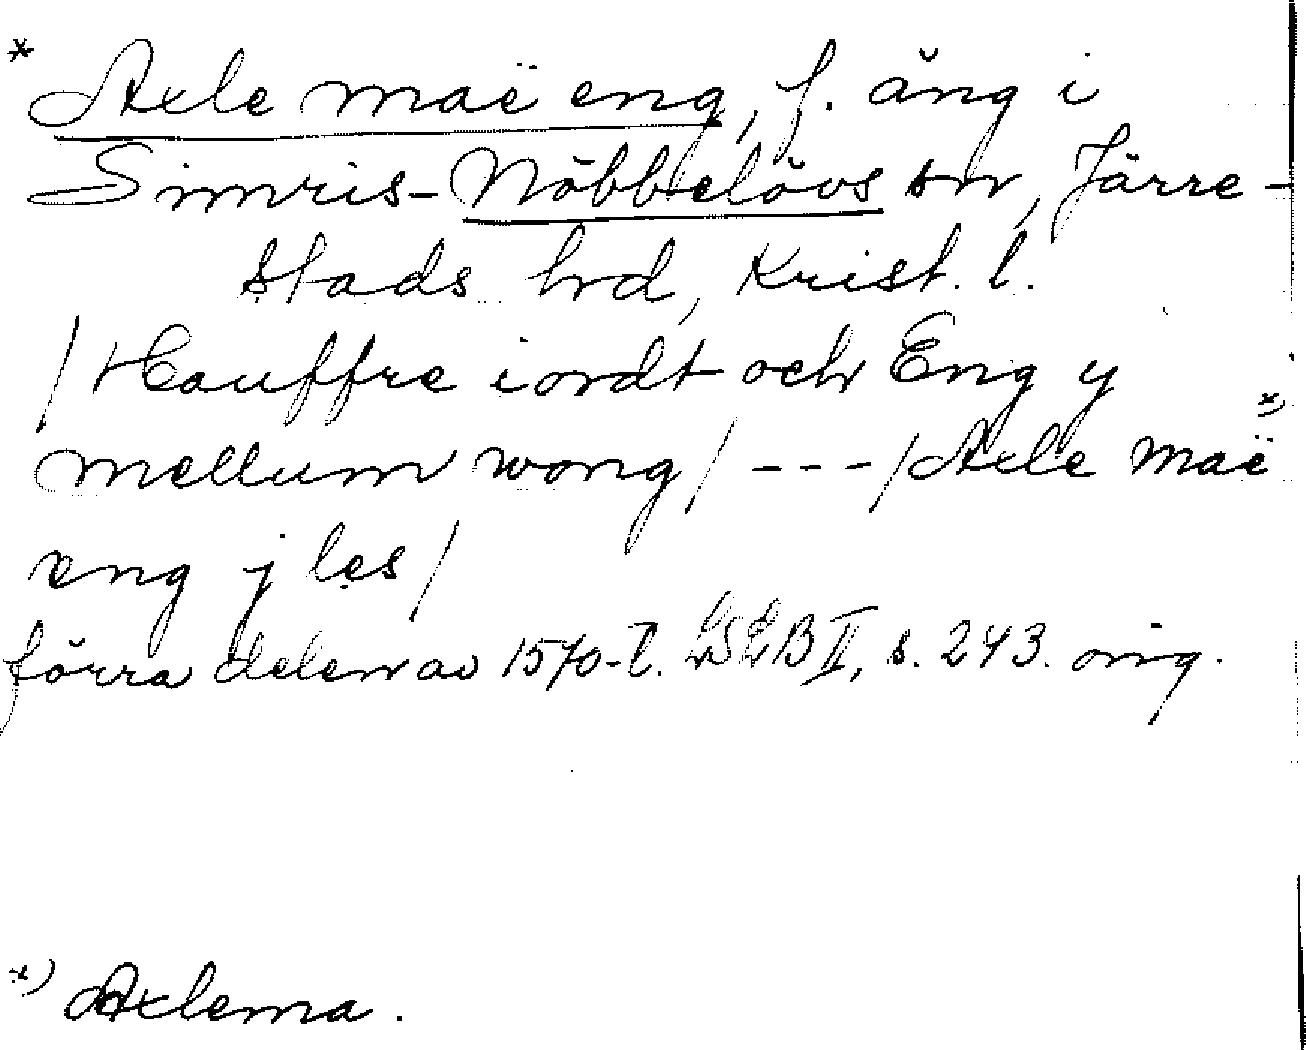 * Axle maë eng, f. äng i
Simris-Nöbbelövs sn, Järre-
stads hd, Krist. l.
/Hauffre iordt och Eng y
mellum wong/ ---/Axle maë x)
eng j les/
förra delen av 1570-t. LSEB II, s. 243. orig.
x) Axlema.